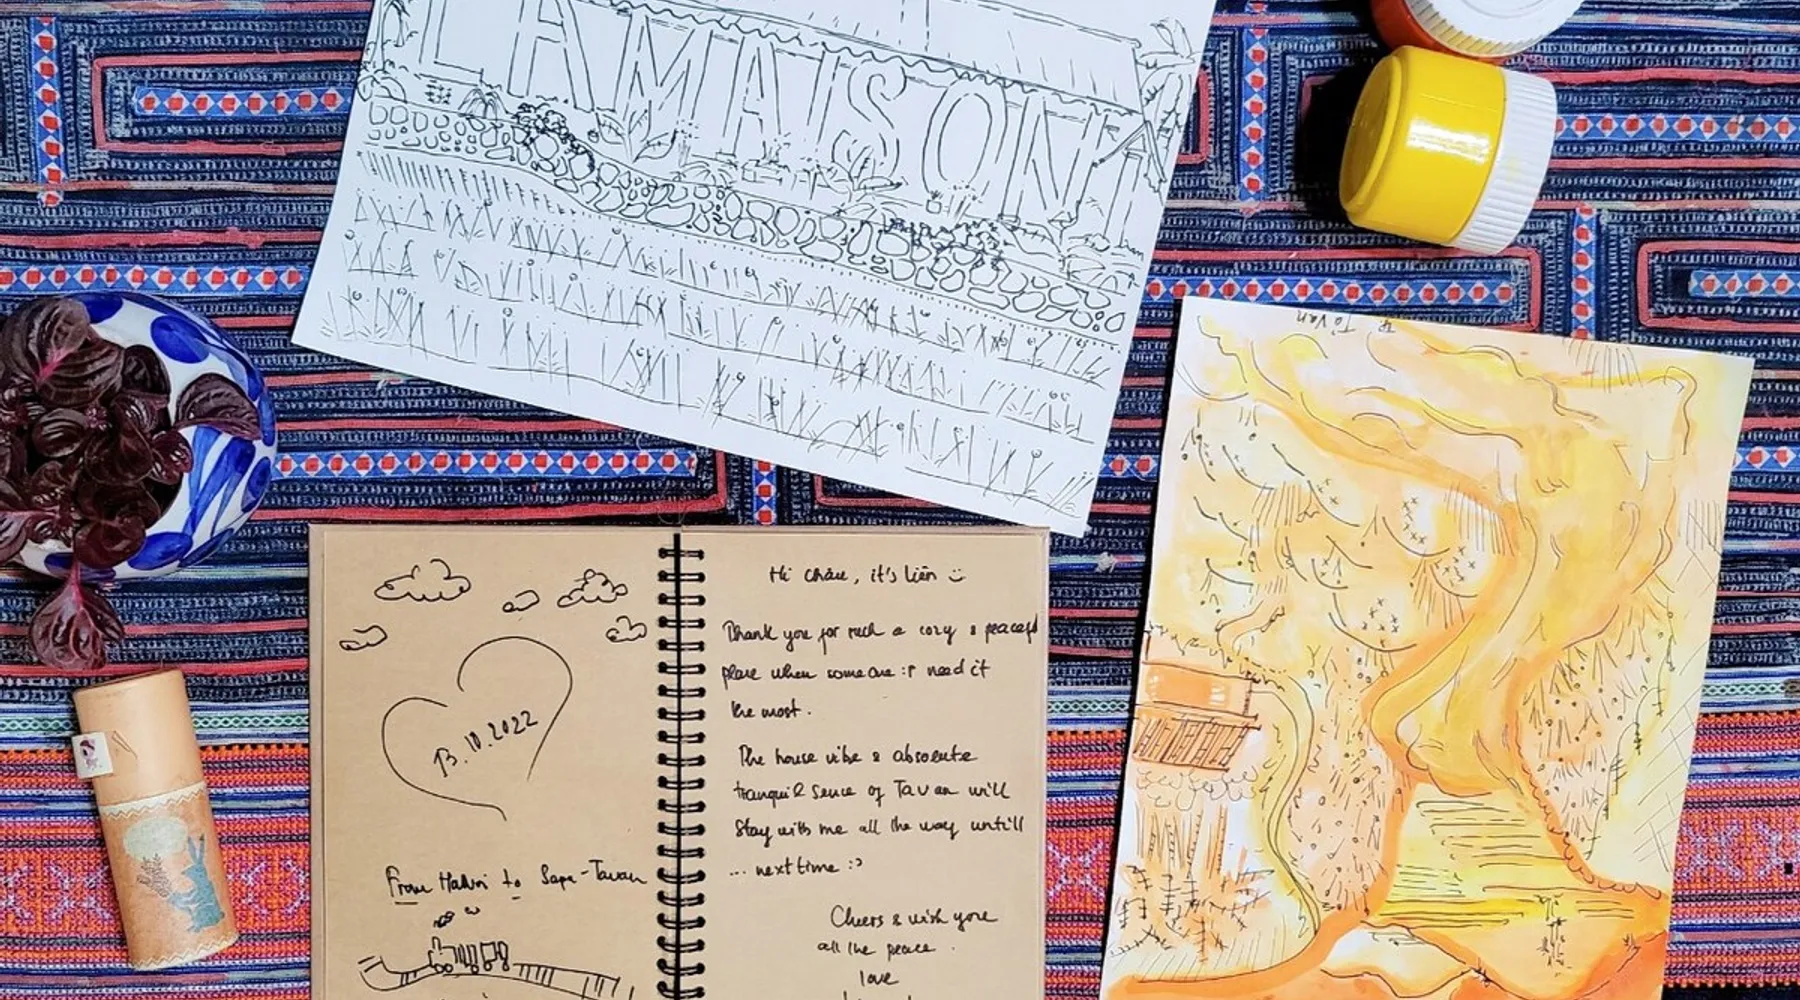 LAMAISONTA
Tavan
13.10.2022
From Hanoi to Sapa-Tavan
Hi Châu, it's Liên
Thank you for such a cozy & peaceful
place when someone :r need it
the most.
The house vibe & absolute
tranquil sence of Tavan will
stay with me all the way untill
... next time :>
Cheers & wish you
all the peace.
love